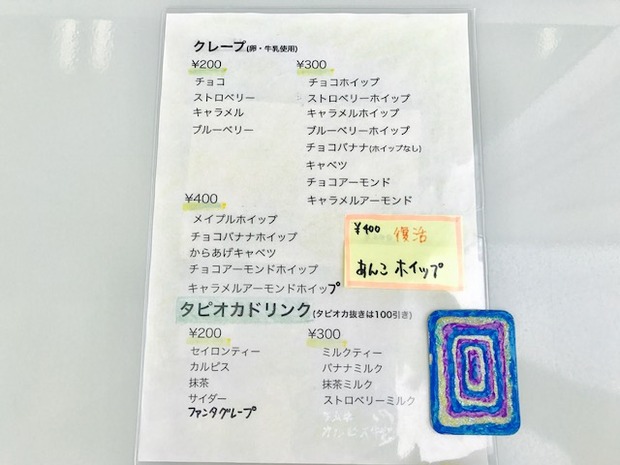 クレープ(卵・牛乳使用)
¥200
チョコ
ストロベリー
キャラメル
ブルーベリー
¥300
チョコホイップ
ストロベリーホイップ
キャラメルホイップ
ブルーベリーホイップ
チョコバナナ(ホイップなし)
キャベツ
チョコアーモンド
キャラメルアーモンド
¥400
メイプルホイップ
チョコバナナホイップ
からあげキャベツ
チョコアーモンドホイップ
キャラメルアーモンドホイップ
¥400 復活
あんこ ホイップ
タピオカドリンク(タピオカ抜きは100引き)
¥200
セイロンティー
カルピス
抹茶
サイダー
ファンタグレープ
¥300
ミルクティー
バナナミルク
抹茶ミルク
ストロベリーミルク